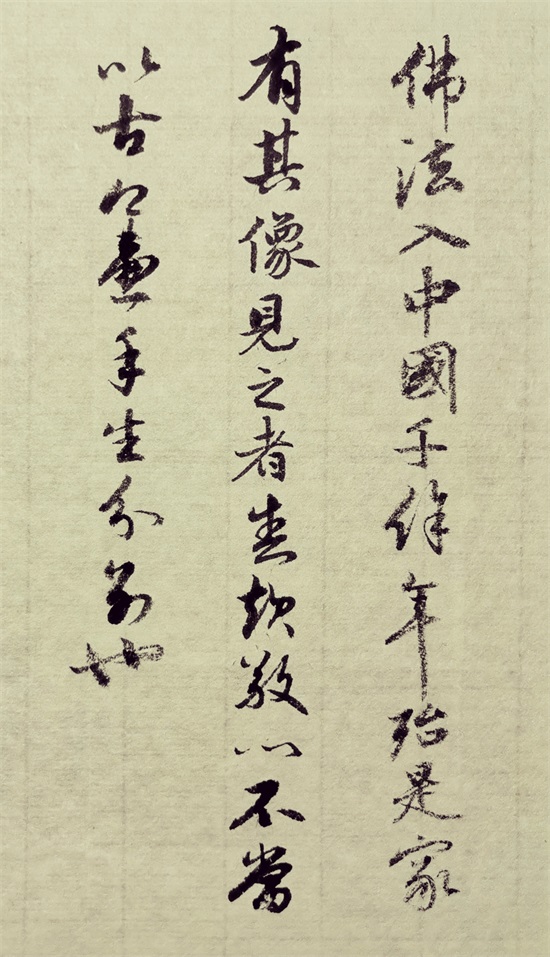 佛法入中國千餘年殆是家
有其像見之者盡起敬心不當
以古今畫手生分別也